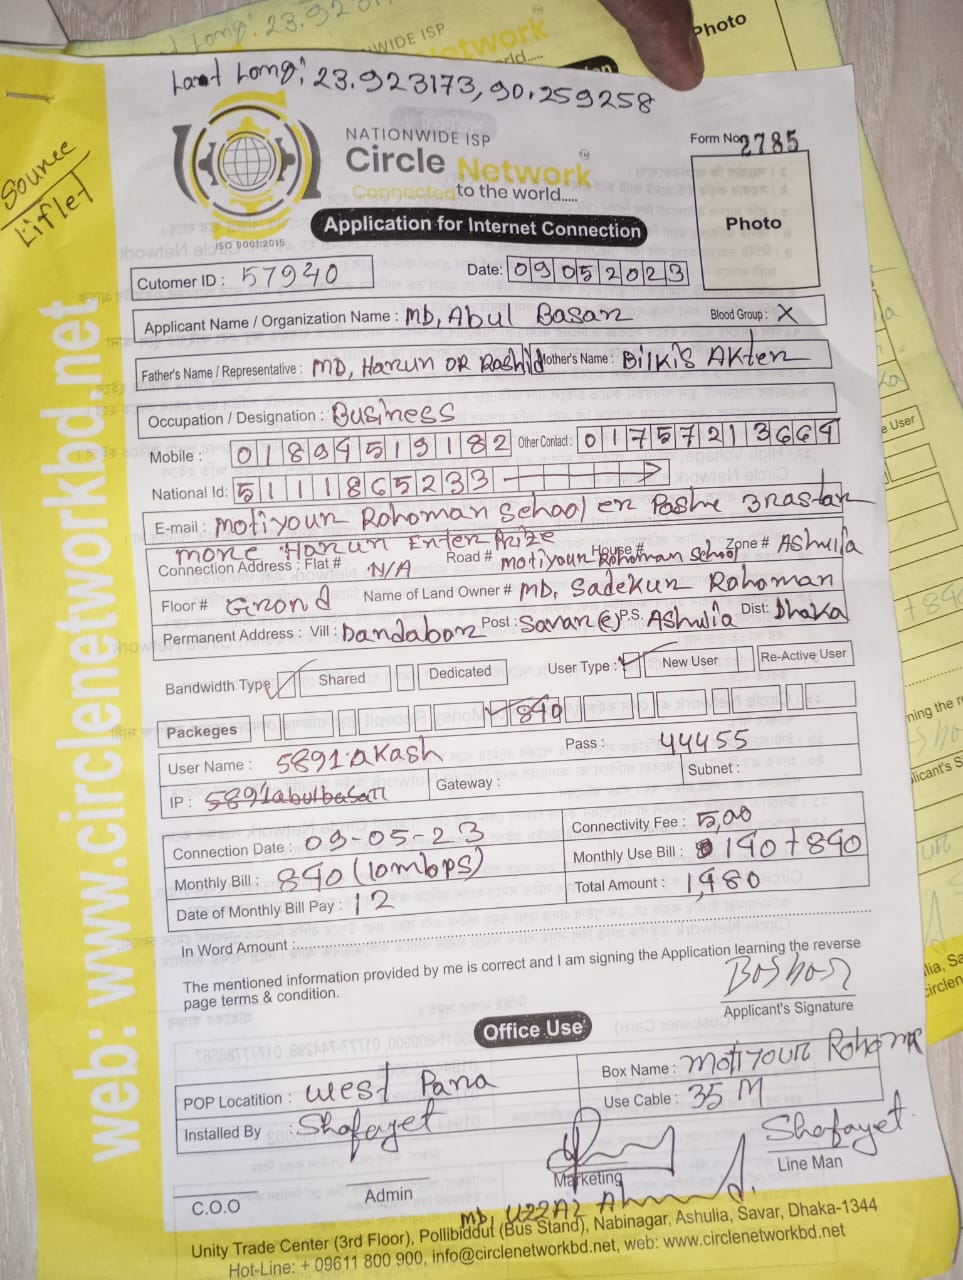 Latt Long: 23.923173, 90.259258
Sounce
Liflet
NATIONWIDE ISP
Circle Network
Connected to the world.....
ISO 9001:2015
Form No 2785
Photo
Application for Internet Connection
Cutomer ID : 57940 Date: 09052023
Applicant Name / Organization Name : MD, Abul Basar Blood Group : X
Father's Name / Representative : MD, Harun OR Rashid Mother's Name : Bilkis Akter
Occupation / Designation : Business
Mobile : 01894519182 Other Contact : 01757213664
National Id: 5111865233
E-mail : Motiyour Rohoman School er Pashe 3 rastar
more Harun Enter Prize
Connection Address : Flat # N/A Road # Motiyour Rohoman School House # Zone # Ashulia
Floor # Grond Name of Land Owner # MD, Sadekur Rohoman
Permanent Address : Vill : Dandabor Post : Savar P.S. Ashulia Dist: Dhaka
Bandwidth Type Shared Dedicated User Type : New User Re-Active User
Packeges 840
User Name : 5891.akash Pass : 44455
IP : 5891abulbasar Gateway : Subnet :
Connection Date : 09-05-23 Connectivity Fee : 500
Monthly Bill : 840 (10mbps) Monthly Use Bill : 140+840
Date of Monthly Bill Pay : 12 Total Amount : 1,480
In Word Amount :
The mentioned information provided by me is correct and I am signing the Application learning the reverse
page terms & condition.
Boshor
Applicant's Signature
Office Use
POP Locatition : West Para Box Name : Motiyour Rohoma
Installed By : Shafayet Use Cable : 35 M
Shafayet
C.O.O Admin Marketing Line Man
MD, Uzzal Ahmed
Unity Trade Center (3rd Floor), Pollibiddut (Bus Stand), Nabinagar, Ashulia, Savar, Dhaka-1344
Hot-Line: + 09611 800 900, info@circlenetworkbd.net, web: www.circlenetworkbd.net
web: www.circlenetworkbd.net